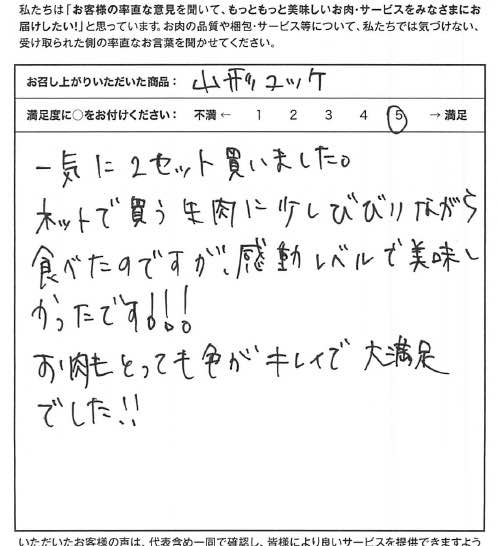 私たちは「お客様の率直な意見を聞いて、もっともっと美味しいお肉・サービスをみなさまにお
届けしたい!」と思っています。お肉の品質や梱包・サービス等について、私たちでは気づけない、
受け取られた側の率直なお言葉を聞かせてください。
お召し上がりいただいた商品: 山形ユッケ
満足度に○をお付けください: 不満 ← 1 2 3 4 5 → 満足
一気に2セット買いました。
ネットで買う生肉に少しびびりながら
食べたのですが、感動レベルで美味し
かったです!!!
お肉もとっても色がキレイで大満足
でした!!
いただいたお客様の声は、代表含め一同で確認し、皆様により良いサービスを提供できますよう